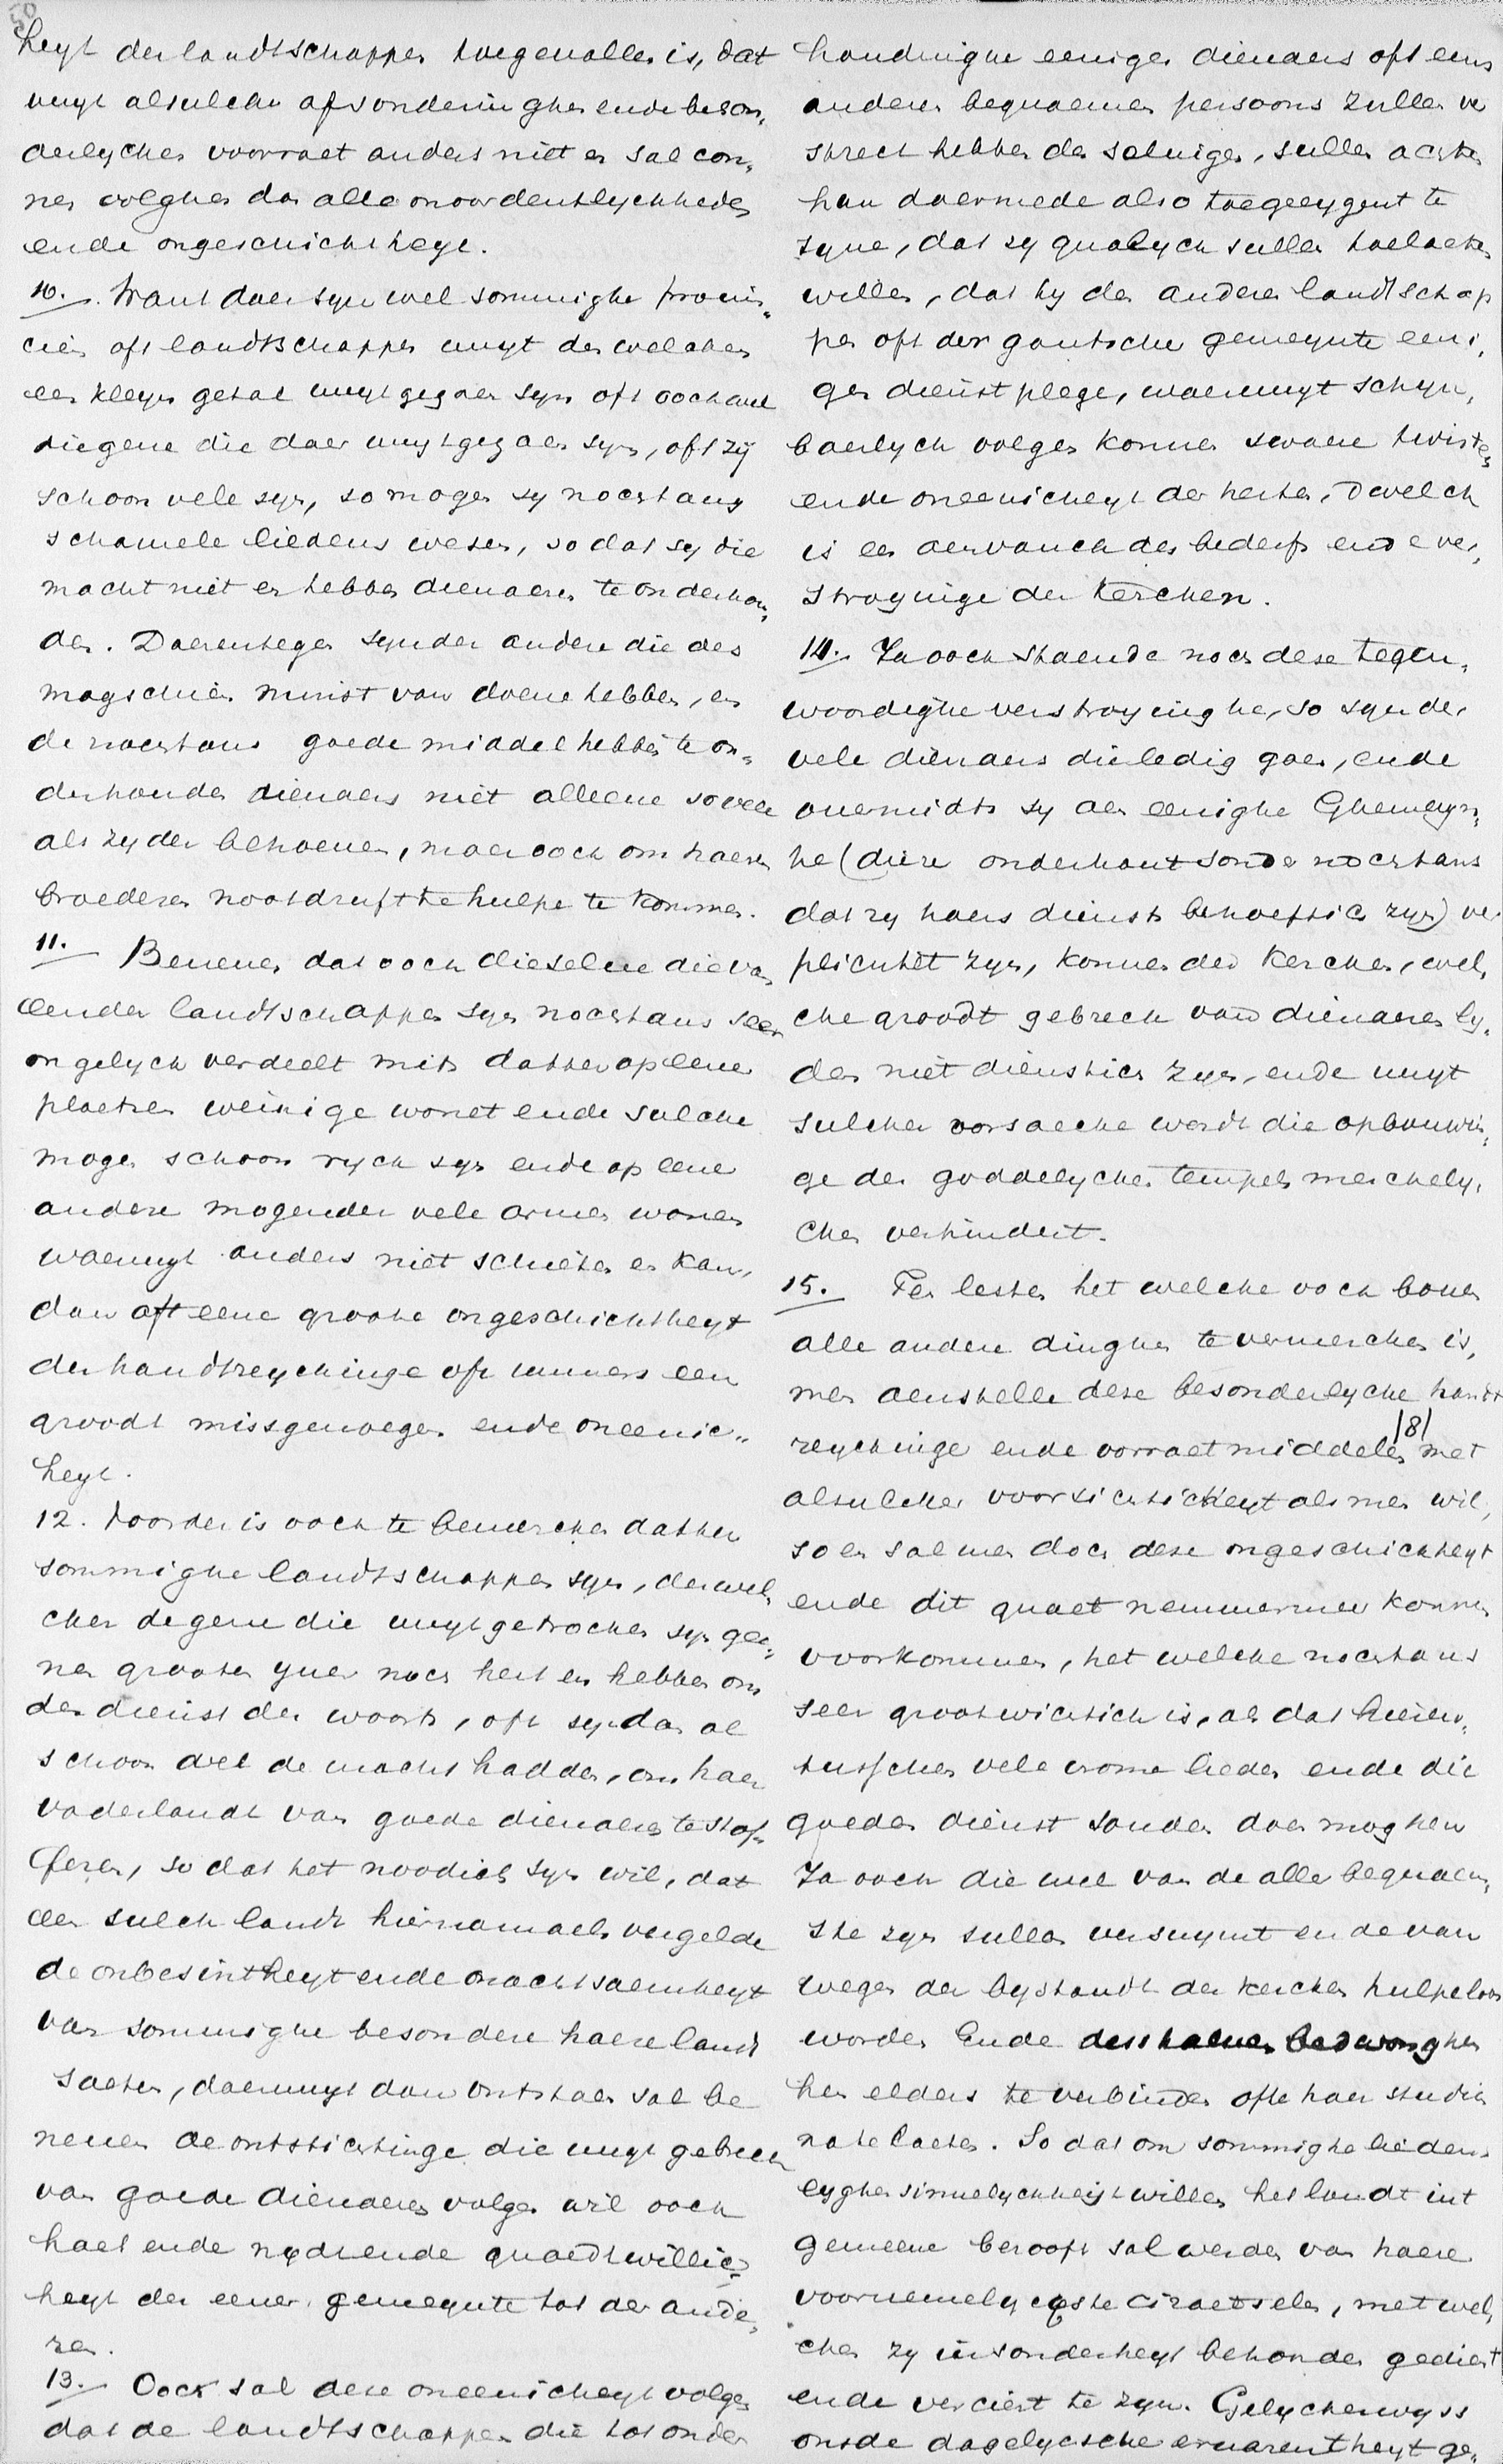 50
heyt der landtschappen toegevallen is, dat
uuyt alsulcken afsonderinghen ende beson„
derlycken voorraet anders niet en sal con„
nen volghen dan alle onoordentlyckheden
ende ongeschicktheyt.
10. Want daer syn wel sommighe provin„
cien oft landtschappen uuyt der welcken
een kleyn getal uuytgegaen syn oft oock alle
diegene die daer uuytgegaen syn, oft zij
schoon vele syn, so mogen sy nochtans
schamele liedens wesen, so dat sy die
macht niet en hebben dienaers te onderhou„
den. Daerentegen synder andere die des
magschien minst van doene hebben, en
de nochtans goede middel hebben te on„
derhouden dienaers niet alleene sovele
als zy der behoeven, maer oock om haeren
broederen nootdruft te hulpe te kommen.
11. Beneven dat oock dieselve die van
eender landtschappen syn nochtans seer
ongelyck verdeelt mits datter op eene
plaetsen weinige wonet ende sulcke
mogen schoon ryck syn ende op eene
andere mogender vele armen wonen
waeruuyt anders niet schieten en kan,
dan oft eene groote ongeschicktheyt
der handtreyckinge oft ummers een
groodt missgenoegen ende oneenic„
heyt.
12. Voorder is oock te bemercken datter
sommighe landtschappen syn, der wel„
cken degene die uuytgetrocken syn gee„
nen grooten yver noch hert en hebben om
den dienst der woorts, oft sy dan al
schoon wel de macht hadden, om haer
vaderlandt van goede dienaers te stof„
feren, so dat het noodich syn wil, dat
een sulck landt hiernamaels vergelde
de onbesintheyt ende onachtsaemheyt
van sommighe besondere haere landt
saeten, daeruuyt dan ontstaen sal be
neven de ontstichtinge die uuyt gebreck
van goede dienaeren volgen wil oock
haet ende nydt ende quaedtwillic„
heyt der eener gemeynte tot der ande„
ren.
13. Oock sal dese oneenicheyt volgen
dat de landtschappen die tot onder
houdinghe eeniger dienaers oft eens
anderen bequaemen persoons zullen ver
streckt hebben der selviger, sullen achten
hen daermede also toegeeygent te
syne, dat sy qualyck sullen toelaeten
willen, dat hy den anderen landtschap
pen oft der gantsche gemeynte eeni„
gen dienst plege, waeruuyt schyn„
baerlyck volgen konnen sware twisten
ende oneenicheyt der herten, Dwelck
is een aenvanck des bederfs ende ver„
stroyinge der Kercken.
14. Ja oock staende noch dese tegen„
woordighe verstroyinghe, so synder
vele dienaers die ledig gaen, ende
overmidts sy aen eenighe Ghemeyn„
te (diese onderhout sonder nochtans
dat zy haers diensts behoeftich zyn) ver
plichtet zyn, konnen der Kercken, wel„
cke groodt gebreck van dienaeren ly„
den niet dienstich zyn, ende uuyt
sulcker oorsaecke werdt die opbouwin„
ge des goddelycken tempels merckely„
cken verhindert.
15. Ten lesten het welcke oock boven
alle andere dinghen te vermercken is,
men aenstelle dese besonderlycke handt
reyckinge ende vorraetmiddelen |8| met
alsulcker voorsichticheyt als men wil,
so en sal men doch dese ongeschicktheyt
ende dit quaet nemmermeer konnen
voorkommen, het welcke nochtans
seer grootwichtich is, als dat hieren„
tusschen vele vrome lieden ende die
goeden dienst souden doen moghen
Ja oock die wel van de alle bequaem„
ste zyn sullen versuymt ende van
wegen der bystandt der kercken hulpeloos
worden Ende desshalven bedwonghen
hen elders te verbinden ofte haer studien
na te laeten. So dat om sommighe liedens
eyghensinnelyckheyt willen het landt int
gemeene berooft sal werden van haere
voornemelycste ciraetselen, met wel„
cken zy insonderheyt behonden gedient
ende verciert te zyn. Gelyckerwyss
onsde dagelycsche ervarentheyt ge„